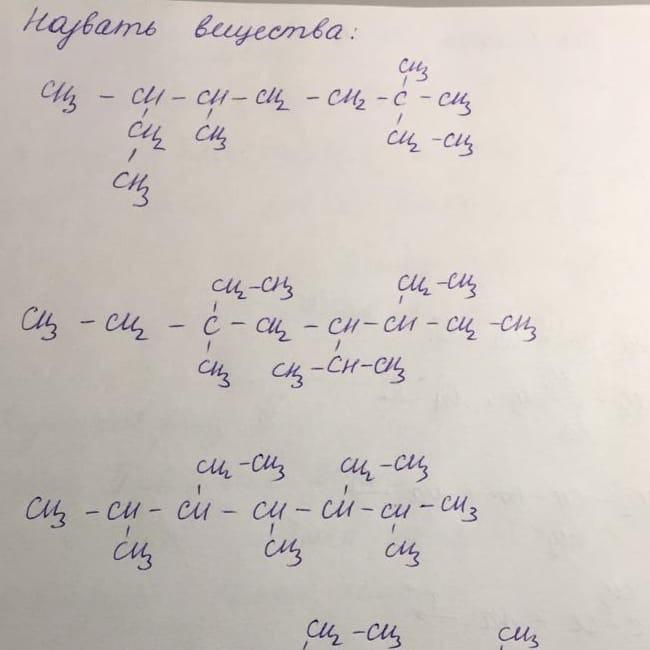 Назвать вещества:
CH₃
CH₃ – CH – CH – CH₂ – CH₂ – C – CH₃
CH₂ CH₃ CH₂ – CH₃
CH₃
CH₂ – CH₃ CH₂ – CH₃
CH₃ – CH₂ – C – CH₂ – CH – CH – CH₂ – CH₃
CH₃ CH₃ – CH – CH₃
CH₂ – CH₃ CH₂ – CH₃
CH₃ – CH – CH – CH – CH – CH – CH₃
CH₃ CH₃ CH₃
CH₂ – CH₃ CH₃